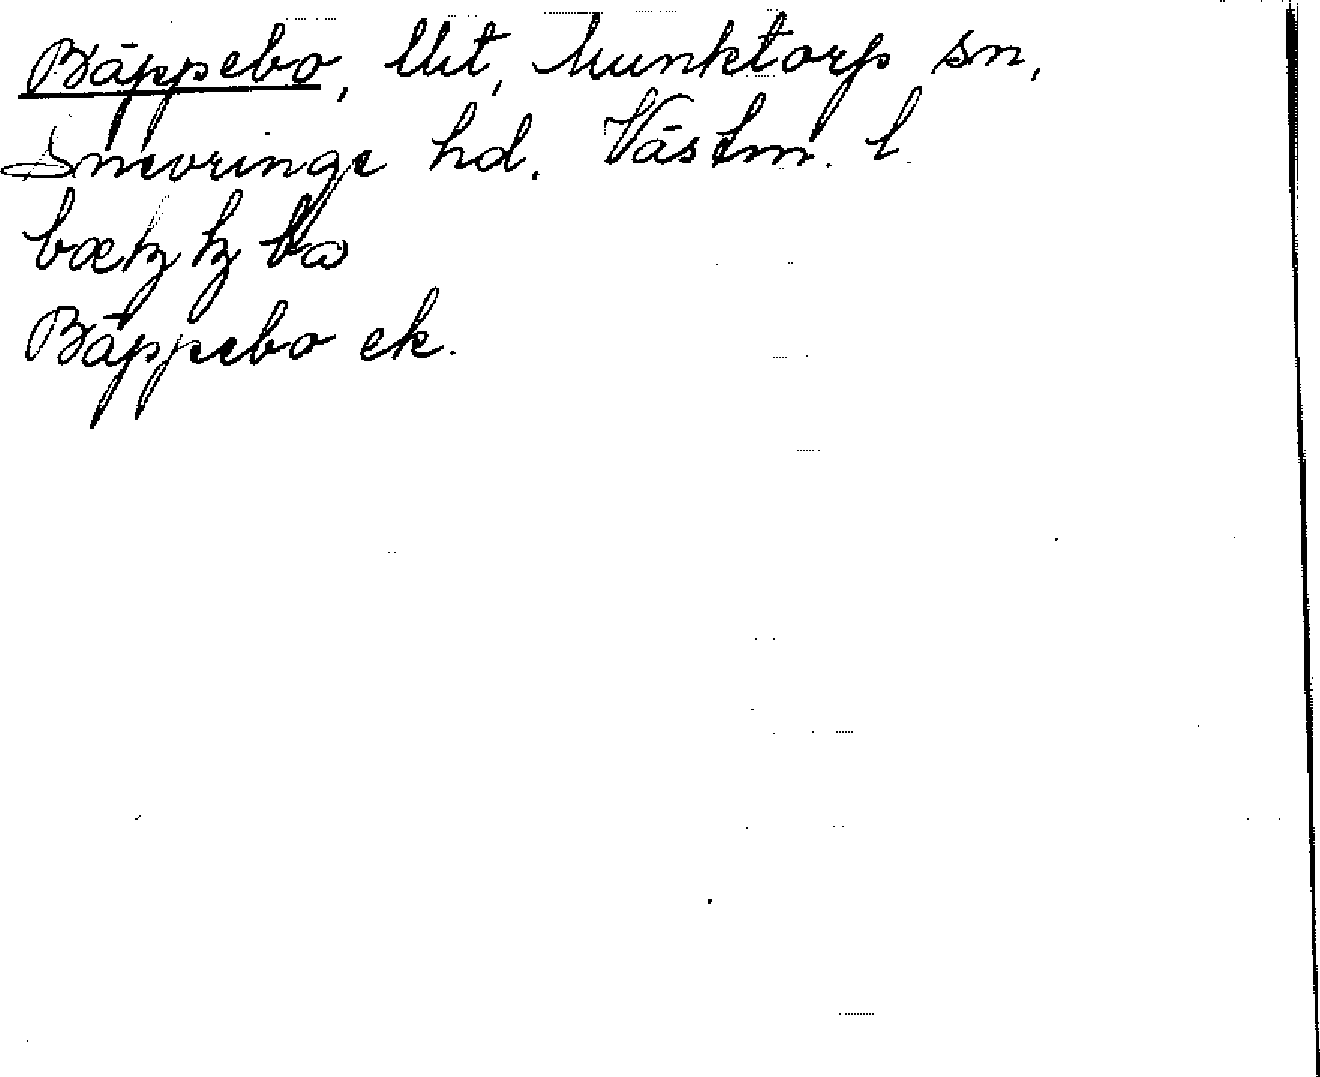 Bäppebo, llht, Munktorp sn,
Snevringe hd. Västm. l.
Bäppebo ek.